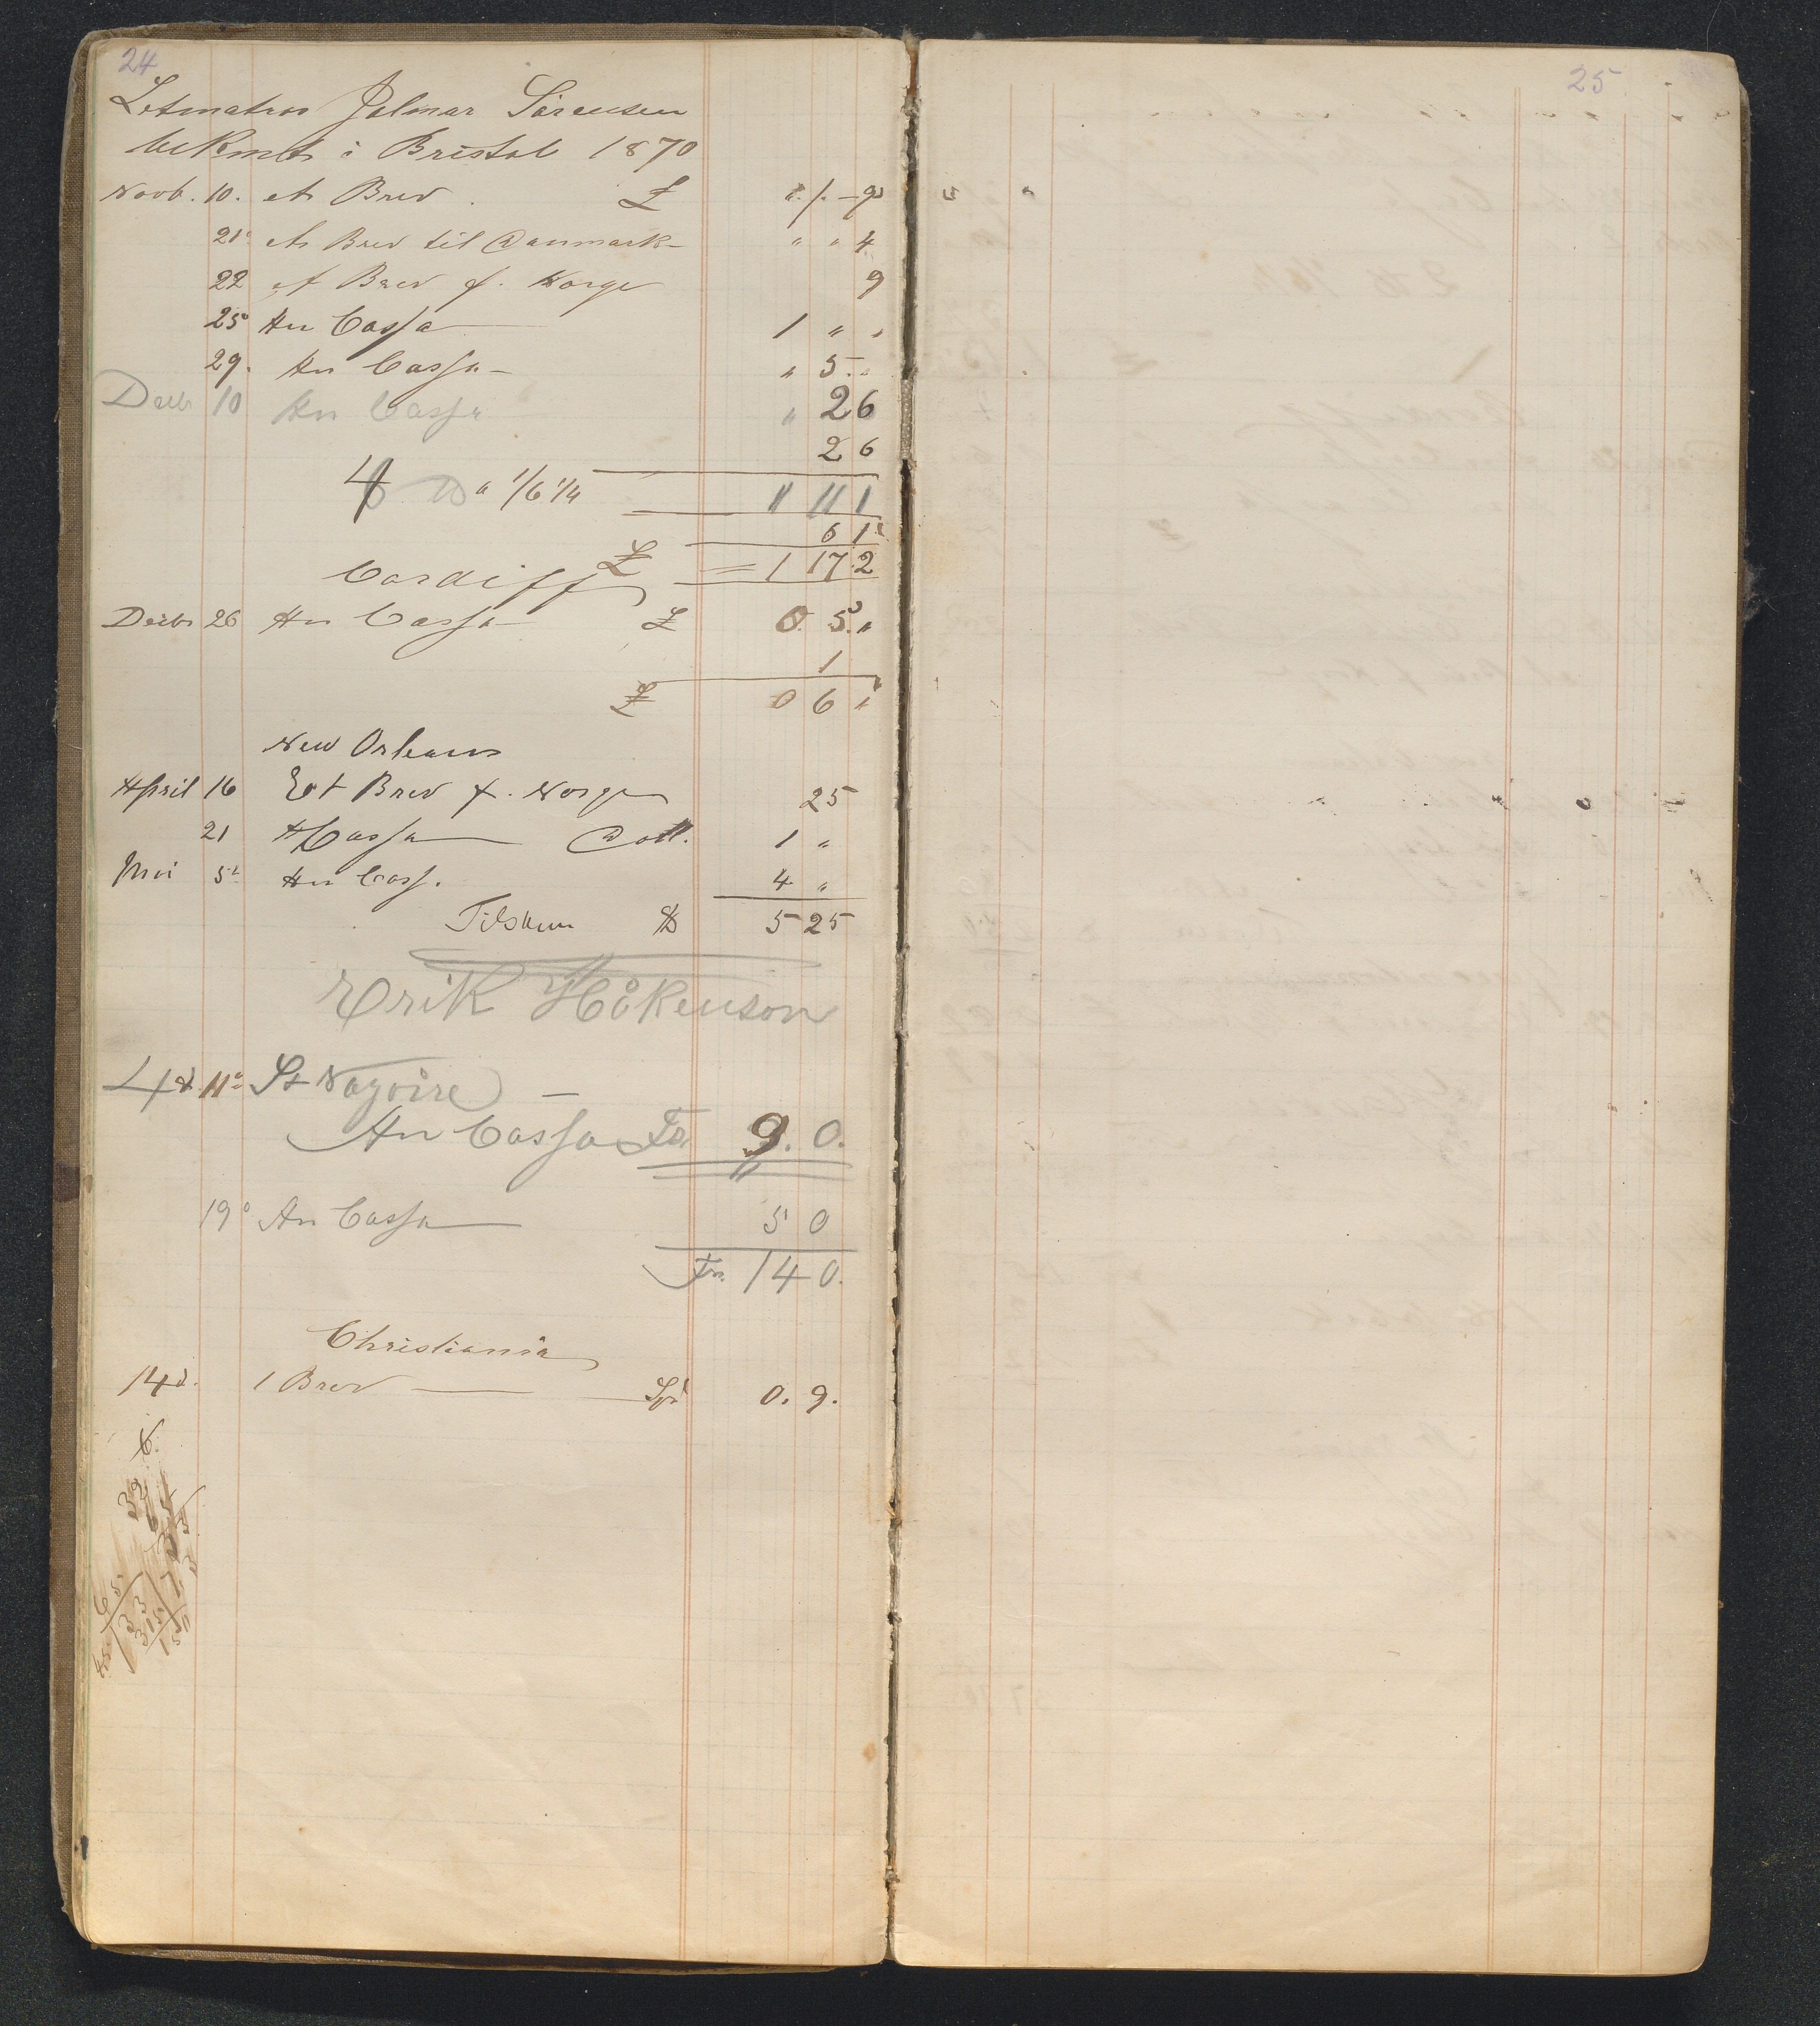 24
Letmatros Jalmar Sörensen
bekmt i Bristol 1870
Novb. 10. et Brev . £ " / - 9
21 et Brev til Danmark - " " 4
22 et Brev f. Norge 9
25 An Cassa 1 " "
29. An Cassa - " 5 - "
Decbr 10 An Cassa " 2 6
2 6
4 a 1/6 1/4 1 11 1
6 1
Cardiff £ = 1 17 2
Decbr 26 An Cassa £ 0. 5. "
1
£ 0 6 "
New Orleans
April 16 Et Brev f. Norge 25
21 A Cassa Doll. 1 "
Mai 5 An Cass. 4 "
Tilskun $ 5 25
Erik Håkenson
4 d. 11 St Nazoire
An Cassa Fr 9. 0.
19 An Cassa 5 0
Fr. 14 0.
Christiania
14 d. 1 Brev Spd 0. 9.
25